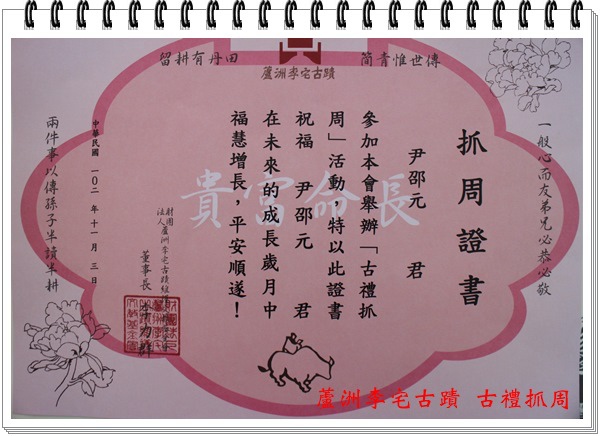 傳世惟青簡
田丹有耕留
蘆洲李宅古蹟
一般心而友弟兄必恭必敬
抓周證書
尹邵元 君
參加本會舉辦「古禮抓
周」活動，特以此證書
祝福 尹邵元 君
在未來的成長歲月中
福慧增長，平安順遂！
財團
法人蘆洲李宅古蹟維
董事長 李
中華民國 一〇二 年 十一 月 三 日
兩件事以傳孫子半讀半耕
長命富貴
蘆洲李宅古蹟 古禮抓周